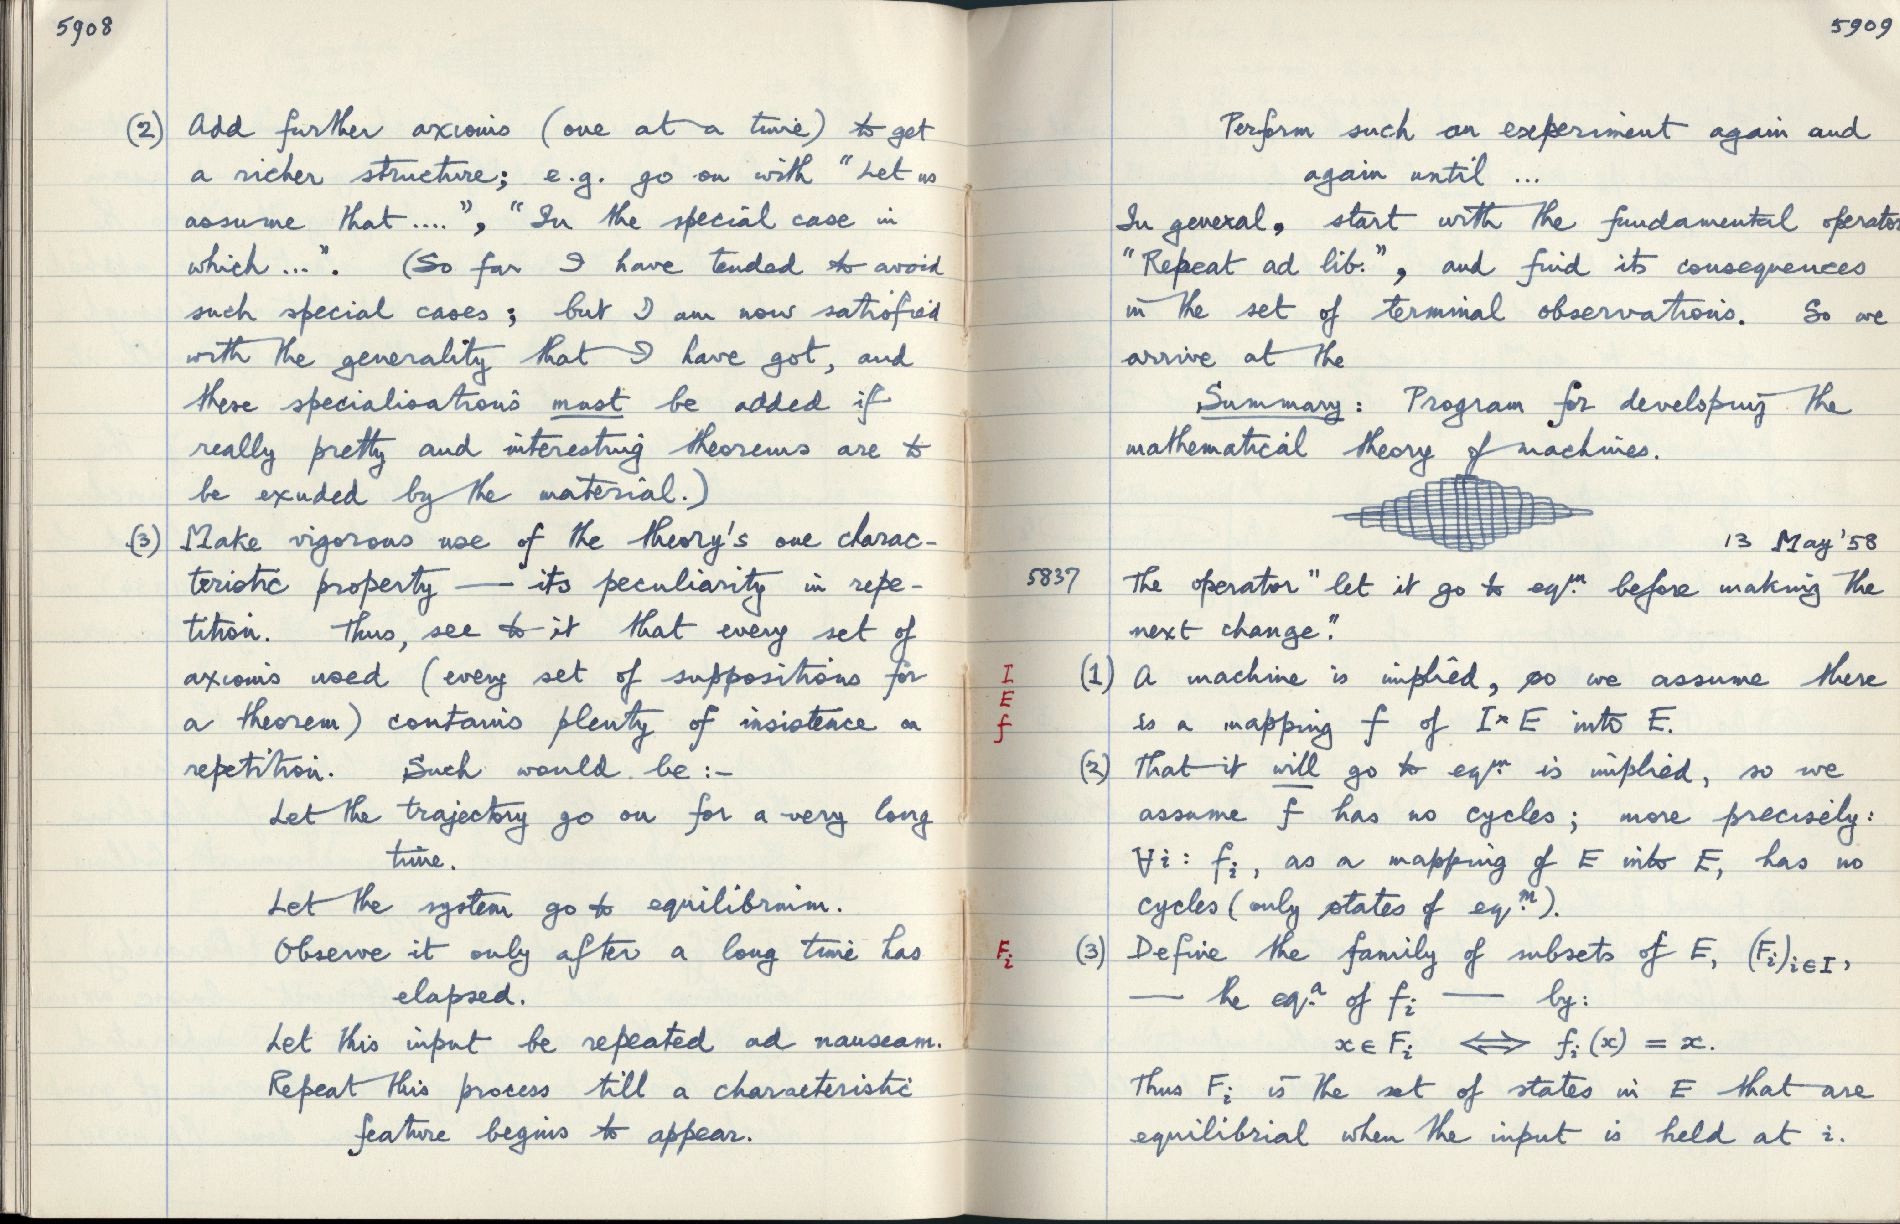 5908
(2) Add further axioms (one at a time) to get
a richer structure; e.g. go on with "Let us
assume that ....", "In the special case in
which ...". (So far I have tended to avoid
such special cases; but I am now satisfied
with the generality that I have got, and
these specialisations must be added if
really pretty and interesting theorems are to
be exuded by the material.)
(3) Make vigorous use of the theory's one charac-
teristic property — its peculiarity in repe-
tition. Thus, see to it that every set of
axioms used (every set of suppositions for
a theorem) contains plenty of insistence on
repetition. Such would be :-
Let the trajectory go on for a very long
time.
Let the system go to equilibrium.
Observe it only after a long time has
elapsed.
Let this input be repeated ad nauseam.
Repeat this process till a characteristic
feature begins to appear.
5909
Perform such an experiment again and
again until ...
In general, start with the fundamental operator
"Repeat ad lib.", and find its consequences
in the set of terminal observations. So we
arrive at the
Summary: Program for developing the
mathematical theory of machines.
13 May '58
5837 The operator "let it go to eqm. before making the
next change".
I (1) A machine is implied, so we assume there
E
f is a mapping f of I×E into E.
(2) That it will go to eqm. is implied, so we
assume f has no cycles; more precisely:
∀i: fi, as a mapping of E into E, has no
cycles (only states of eqm.).
Fi (3) Define the family of subsets of E, (Fi)i∈I,
— the eq.a of fi — by:
x ∈ Fi ⟺ fi(x) = x.
Thus Fi is the set of states in E that are
equilibrial when the input is held at i.